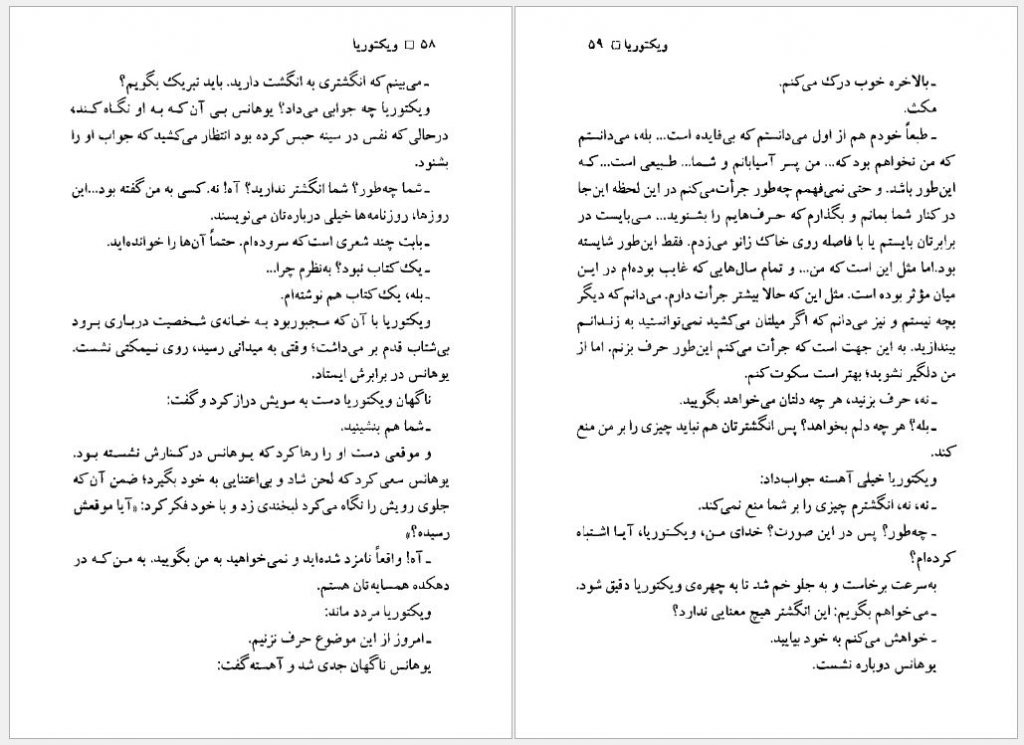 ۵۸ □ ویکتوریا
ـ می‌بینم که انگشتری به انگشت دارید. باید تبریک بگویم؟
ویکتوریا چه جوابی می‌داد؟ یوهانس بی آن‌که به او نگاه کند،
درحالی که نفس در سینه حبس کرده بود انتظار می‌کشید که جواب او را
بشنود.
ـ شما چه‌طور؟ شما انگشتر ندارید؟ آه! نه. کسی به من گفته بود...این
روزها، روزنامه‌ها خیلی درباره‌تان می‌نویسند.
ـ بابت چند شعری است که سروده‌ام. حتماً آن‌ها را خوانده‌اید.
ـ یک کتاب نبود؟ به‌نظرم چرا...
ـ بله، یک کتاب هم نوشته‌ام.
ویکتوریا با آن که مجبوربود به خانه‌ی شخصیت درباری برود
بی‌شتاب قدم بر می‌داشت؛ وقتی به میدانی رسید، روی نیمکتی نشست.
یوهانس در برابرش ایستاد.
ناگهان ویکتوریا دست به سویش دراز کرد و گفت:
ـ شما هم بنشینید.
و موقعی دست او را رها کرد که یوهانس در کنارش نشسته بود.
یوهانس سعی کرد که لحن شاد و بی‌اعتنایی به خود بگیرد؛ ضمن آن که
جلوی رویش را نگاه می‌کرد لبخندی زد و با خود فکر کرد: «آیا موقعش
رسیده؟»
ـ آه! واقعاً نامزد شده‌اید و نمی‌خواهید به من بگویید. به من که در
دهکده همسایه‌تان هستم.
ویکتوریا مردد ماند:
ـ امروز از این موضوع حرف نزنیم.
یوهانس ناگهان جدی شد و آهسته گفت:
ویکتوریا □ ۵۹
ـ بالاخره خوب درک می‌کنم.
مکث.
ـ طبعاً خودم هم از اول می‌دانستم که بی‌فایده است... بله، می‌دانستم
که من نخواهم بود که... من پسر آسیابانم و شما... طبیعی است...که
این‌طور باشد. و حتی نمی‌فهمم چه‌طور جرأت می‌کنم در این لحظه این‌جا
در کنار شما بمانم و بگذارم که حرف‌هایم را بشنوید... می‌بایست در
برابرتان بایستم یا با فاصله روی خاک زانو می‌زدم. فقط این‌طور شایسته
بود.اما مثل این است که من... و تمام سال‌هایی که غایب بوده‌ام در این
میان مؤثر بوده است. مثل این‌که حالا بیشتر جرأت دارم. می‌دانم که دیگر
بچه نیستم و نیز می‌دانم که اگر میلتان می‌کشید نمی‌توانستید به زندانم
بیندازید. به این جهت است که جرأت می‌کنم این‌طور حرف بزنم. اما از
من دلگیر نشوید؛ بهتر است سکوت کنم.
ـ نه، حرف بزنید، هر چه دلتان می‌خواهد بگویید.
ـ بله؟ هر چه دلم بخواهد؟ پس انگشترتان هم نباید چیزی را بر من منع
کند.
ویکتوریا خیلی آهسته جواب‌داد:
ـ نه، نه، انگشترم چیزی را بر شما منع نمی‌کند.
ـ چه‌طور؟ پس در این صورت؟ خدای من، ویکتوریا، آیا اشتباه
کرده‌ام؟
به‌سرعت برخاست و به جلو خم شد تا به چهره‌ی ویکتوریا دقیق شود.
ـ می‌خواهم بگویم: این انگشتر هیچ معنایی ندارد؟
ـ خواهش می‌کنم به خود بیایید.
یوهانس دوباره نشست.